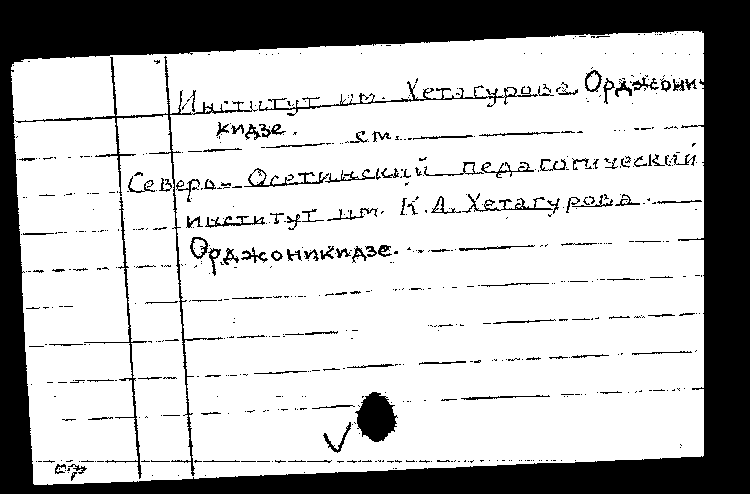 Институт им. Хетагурова. Орджони-
кидзе. см.
Северо-Осетинский педагогический
институт им. К.А. Хетагурова.
Орджоникидзе.